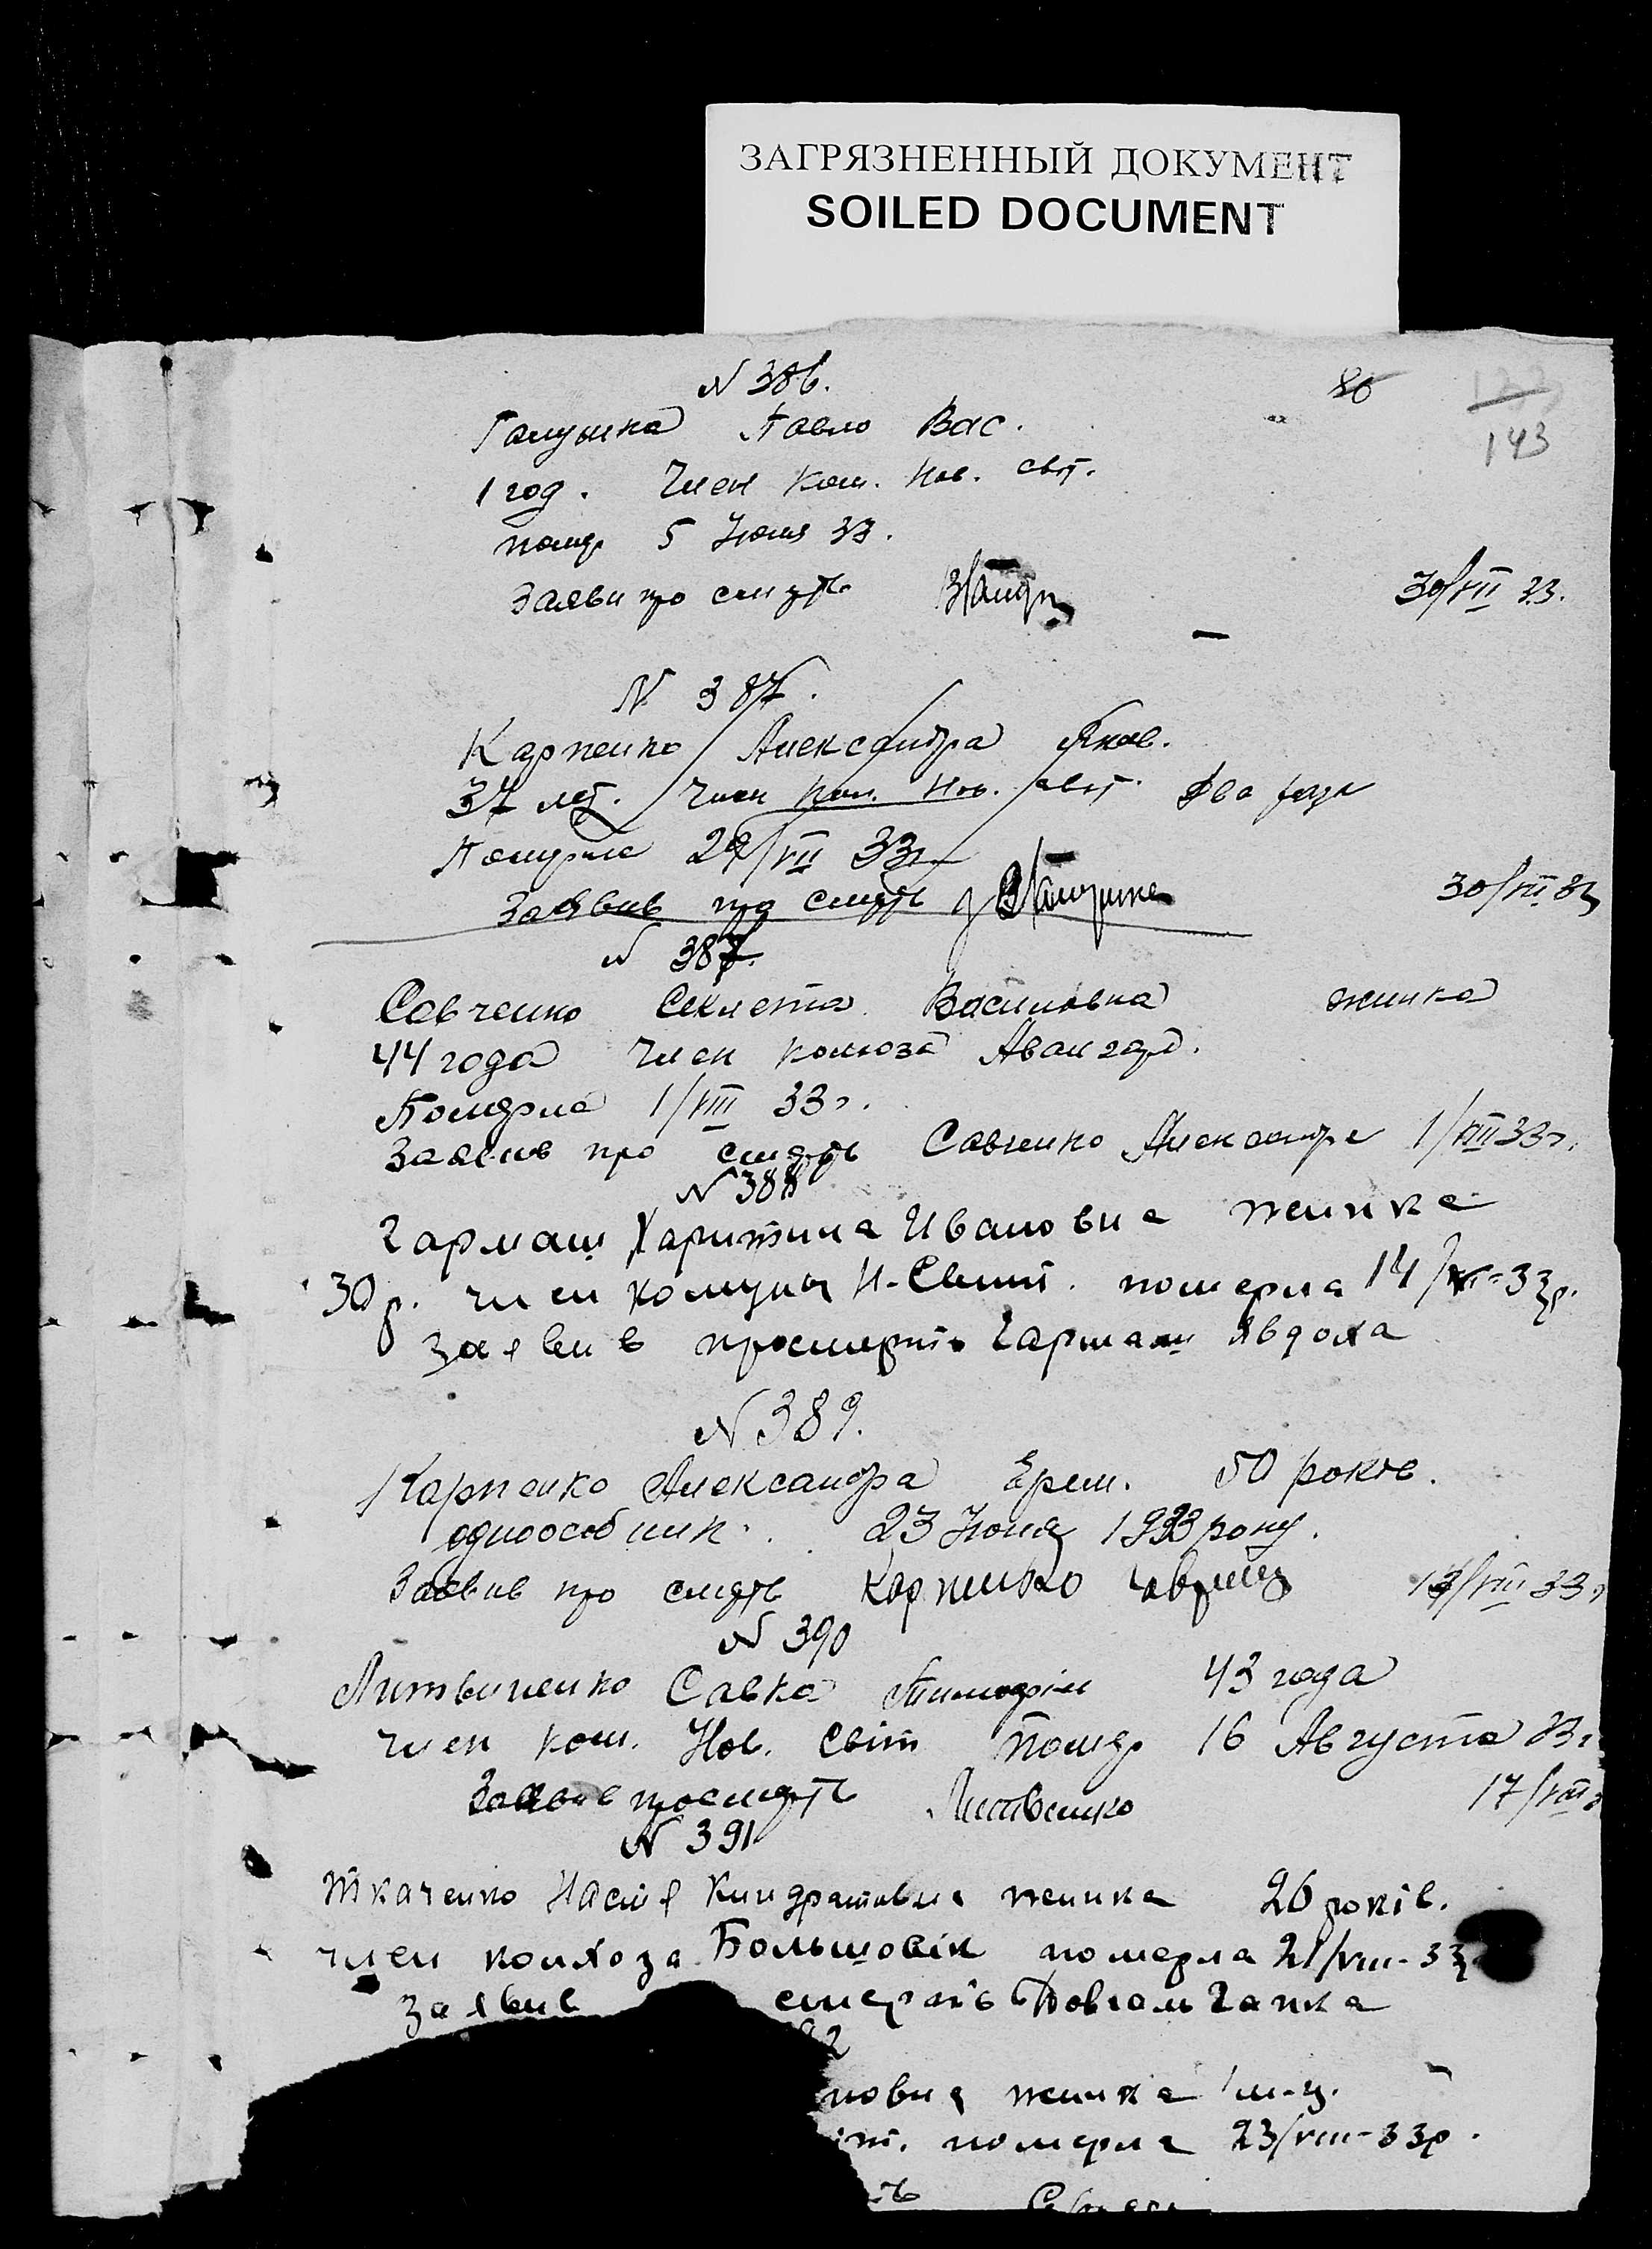 ЗАГРЯЗНЕННЫЙ ДОКУМЕНТ
SOILED DOCUMENT
N 386.
86
143
Галушка Павло Вас.
1 год. Член Ком. Нов. світ.
помер 5 Июля 33.
Заяви про смерть
30/VII 33.
N 387.
Карпенко Александра Яков.
37 лет. Член Ком. Нов. світ.
Померла 29/VII 33г
Заявив про смерть
30/VII 33
N 387.
Савченко Секлета Василовна жинка
44 года Член колхоза Авангард.
Померла 1/VIII 33г.
Заявив про смерть Савченко Александр 1/VIII 33г.
N 388
Гармаш Харитина Ивановна жинка
30 р. член комуны Н-Свит. померла 14/ -33р.
заявив просмерть Гармаш Явдоха
N 389.
Карпенко Александра Ерем. 50 років.
одноособник. 23 Июля 1933 року.
Заявив про смерть Карпенко /VIII 33г
N 390
Литвиненко Савка Тимофій 43 года
член ком. Нов. Світ Помер 16 Августа 33г
Заявив просмерть Литвинко 17/VIII
N 391
Ткаченко Настя Киндратовна жинка 26 років.
член колхоза Большовік померла 21/VIII-33
заявив смерть Довгаль Гапка
92
новна жинка 1 м-ц.
іт. померла 23/VIII-33р.
ть